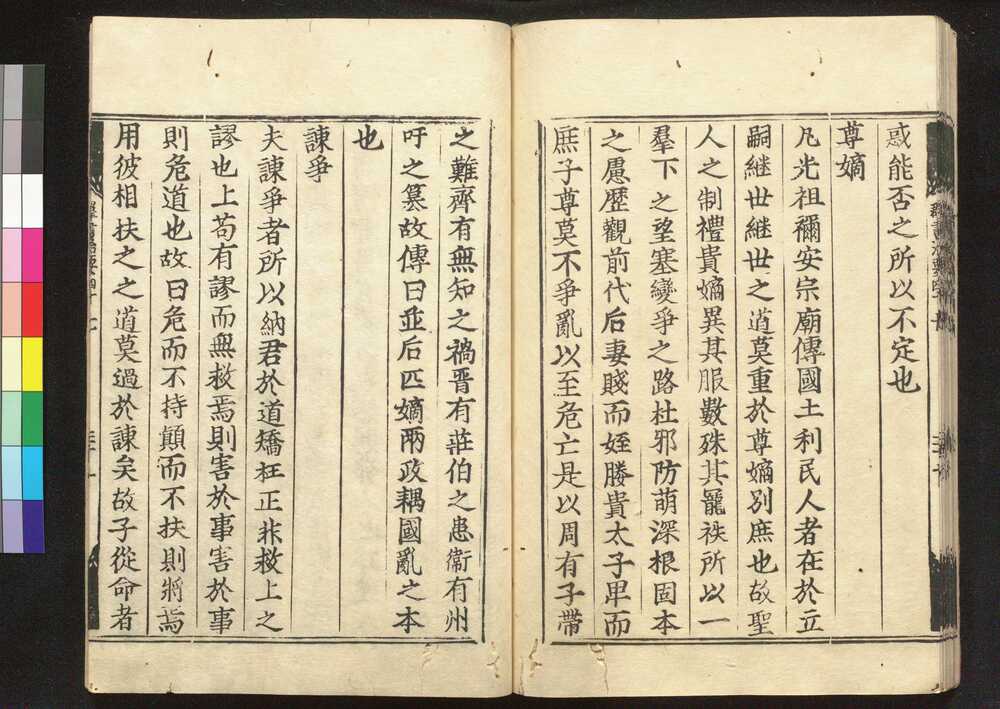 惑能否之所以不定也
尊嫡
凡光祖禰安宗廟傳國土利民人者在於立
嗣継世継世之道莫重於尊嫡別庶也故聖
人之制禮貴嫡異其服數殊其寵秩所以一
羣下之望塞變爭之路杜邪防萌深根固本
之慮歷觀前代后妻賤而姪媵貴太子卑而
庶子尊莫不爭亂以至危亡是以周有子帶
之難齊有無知之禍晋有莊伯之患衛有州
吁之篡故傳曰並后匹嫡兩政耦國亂之本
也
諫爭
夫諫爭者所以納君於道矯枉正非救上之
謬也上苟有謬而無救焉則害於事害於事
則危道也故曰危而不持顛而不扶則將焉
用彼相扶之之道莫過於諫矣故子從命者